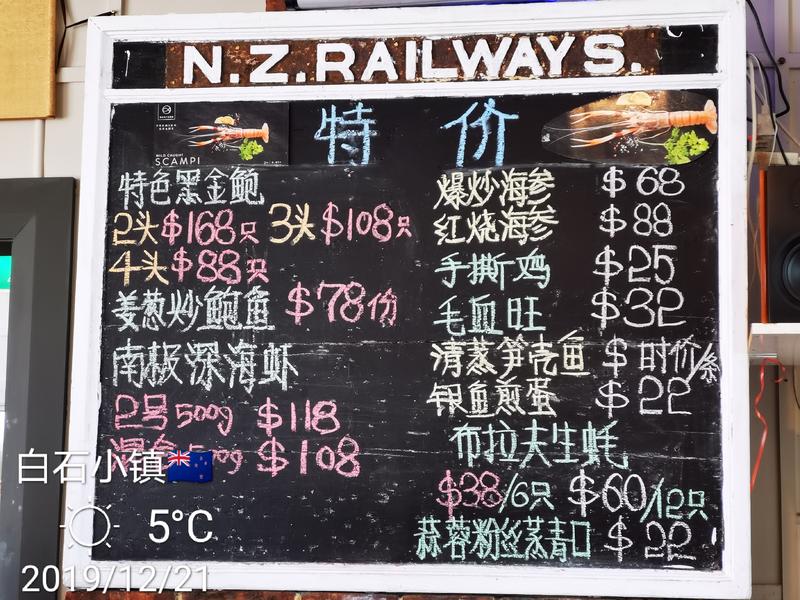 N.Z.RAILWAYS.
WILD CAUGHT
SCAMPI
特价
特色黑金鲍
2头$168只 3头$108只
4头$88只
姜葱炒鲍鱼 $78份
南极深海虾
2号 500g $118
混合 500g $108
爆炒海参 $68
红烧海参 $88
手撕鸡 $25
毛血旺 $32
清蒸笋壳鱼 $时价/条
银鱼煎蛋 $22
布拉夫生蚝
$38/6只 $60/12只
蒜蓉粉丝蒸青口 $22
白石小镇🇳🇿
5°C
2019/12/21